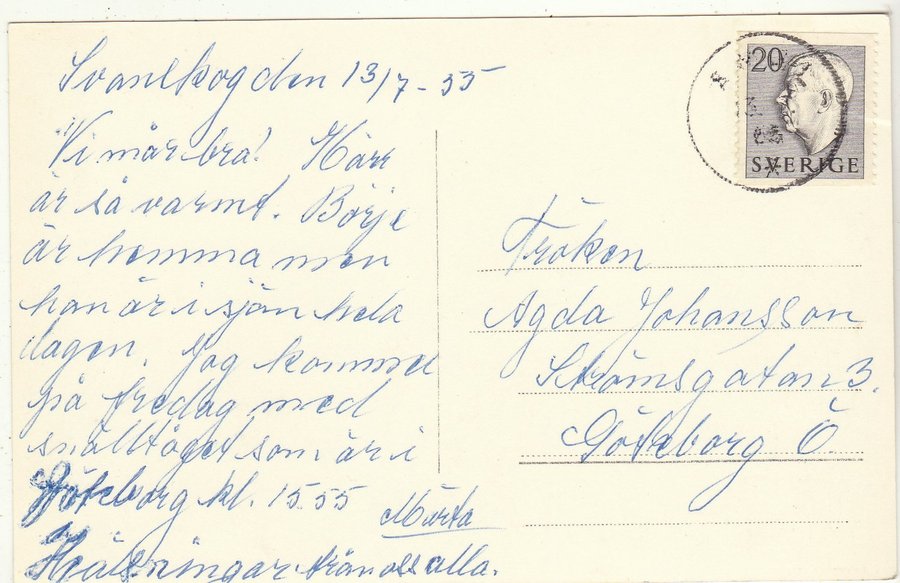 Svanskog den 13/7-55
Vi mår bra! Här
är så varmt. Börje
är hemma men
han är i sjön hela
dagen. Jag kommer
på fredag med
snälltåget som är i
Göteborg kl. 1555
Märta
Hälsningar från oss alla.
20
SVERIGE
Fröken
Agda Johansson
Strömsgatan 3.
Göteborg Ö.